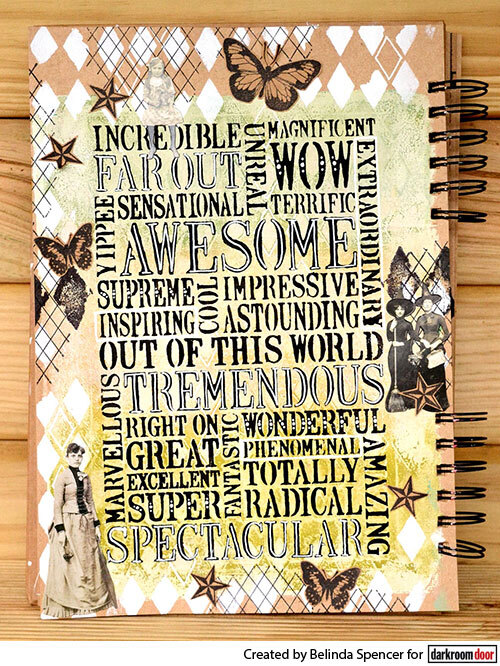 INCREDIBLE
UNREAL
MAGNIFICENT
FAR OUT
WOW
EXTRAORDINARY
YIPPEE
SENSATIONAL
TERRIFIC
AWESOME
SUPREME
COOL
IMPRESSIVE
INSPIRING
ASTOUNDING
OUT OF THIS WORLD
TREMENDOUS
MARVELLOUS
RIGHT ON
FANTASTIC
WONDERFUL
AMAZING
GREAT
PHENOMENAL
EXCELLENT
TOTALLY
SUPER
RADICAL
SPECTACULAR
Created by Belinda Spencer for darkroomdoor